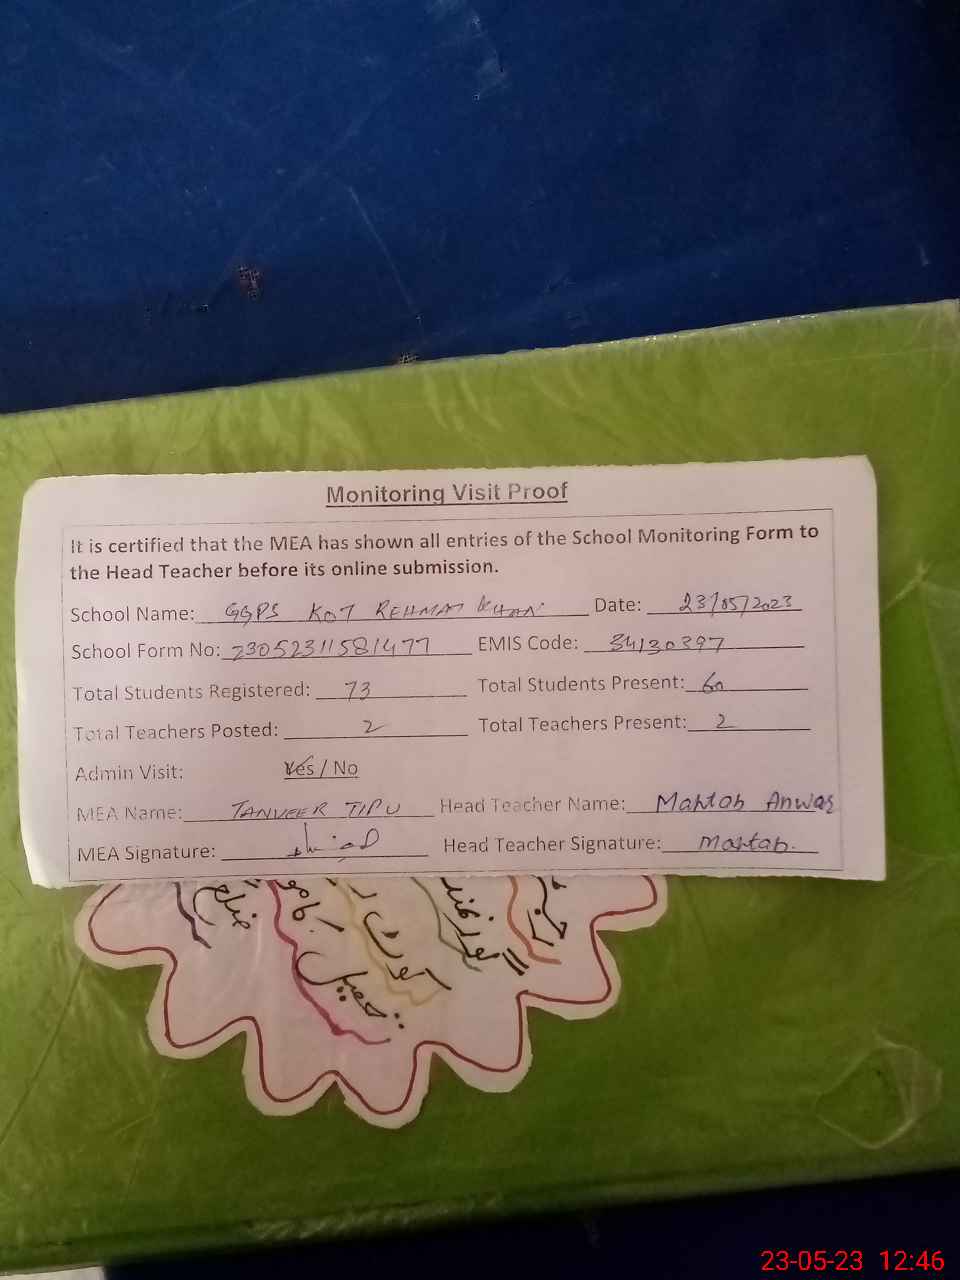 Monitoring Visit Proof
It is certified that the MEA has shown all entries of the School Monitoring Form to
the Head Teacher before its online submission.
School Name: GGPS KOT REHMAT KHAN Date: 23/05/2023
School Form No: 23052311581477 EMIS Code: 34130397
Total Students Registered: 73 Total Students Present: 60
Total Teachers Posted: 2 Total Teachers Present: 2
Admin Visit: Yes / No
MEA Name: TANVEER TIPU Head Teacher Name: Mahtab Anwar
MEA Signature: Head Teacher Signature: Mahtab.
کوٹ
تحصیل
ضلع
23-05-23 12:46